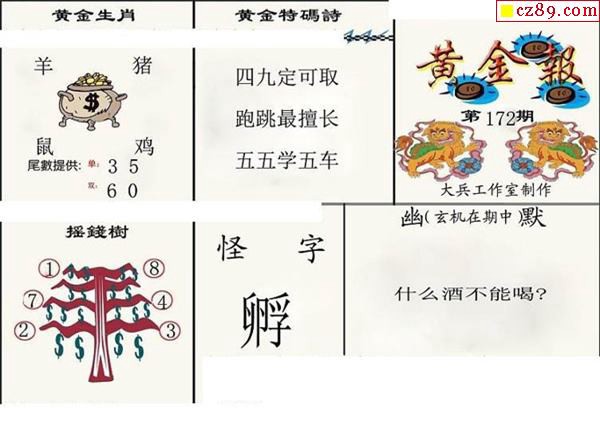 黄金生肖
羊 猪
鼠 鸡
尾數提供: 单: 3 5
双: 6 0
黄金特碼詩
四九定可取
跑跳最擅长
五五学五车
cz89.com
黄金報
第172期
大兵工作室制作
摇錢樹
1 8
7 4
2 3
怪 字
孵
幽(玄机在期中)默
什么酒不能喝?